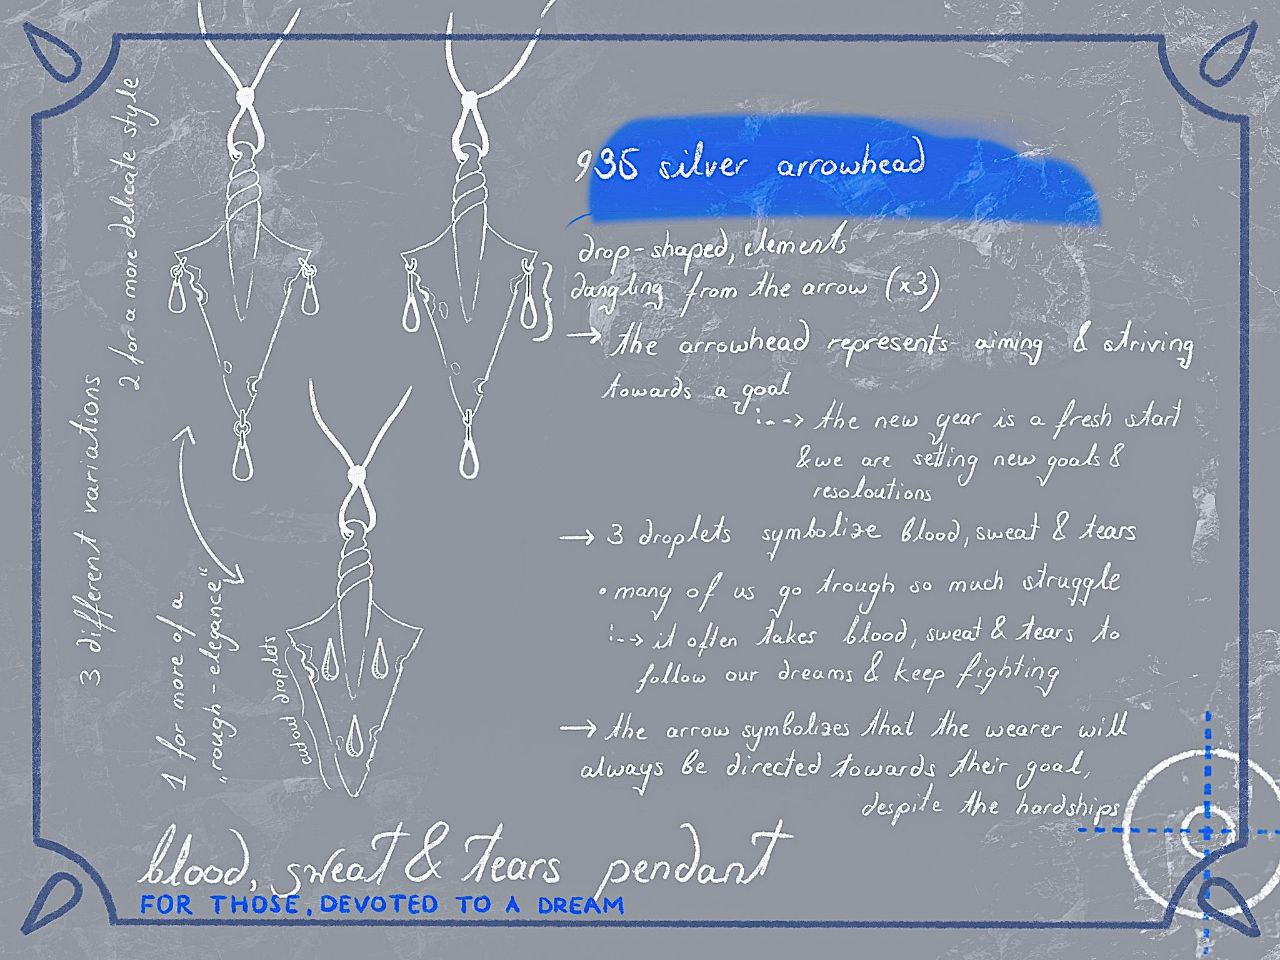 3 different variations
2 for a more delicate style
1 for more of a
„rough-elegance“
cutout droplets
935 silver arrowhead
drop-shaped, elements
dangling from the arrow (x3)
→ the arrowhead represents aiming & striving
towards a goal
the new year is a fresh start
& we are setting new goals &
resoloutions
→ 3 droplets symbolize blood, sweat & tears
• many of us go trough so much struggle
it often takes blood, sweat & tears to
follow our dreams & keep fighting
→ the arrow symbolizes that the wearer will
always be directed towards their goal,
despite the hardships
blood, sweat & tears pendant
FOR THOSE, DEVOTED TO A DREAM